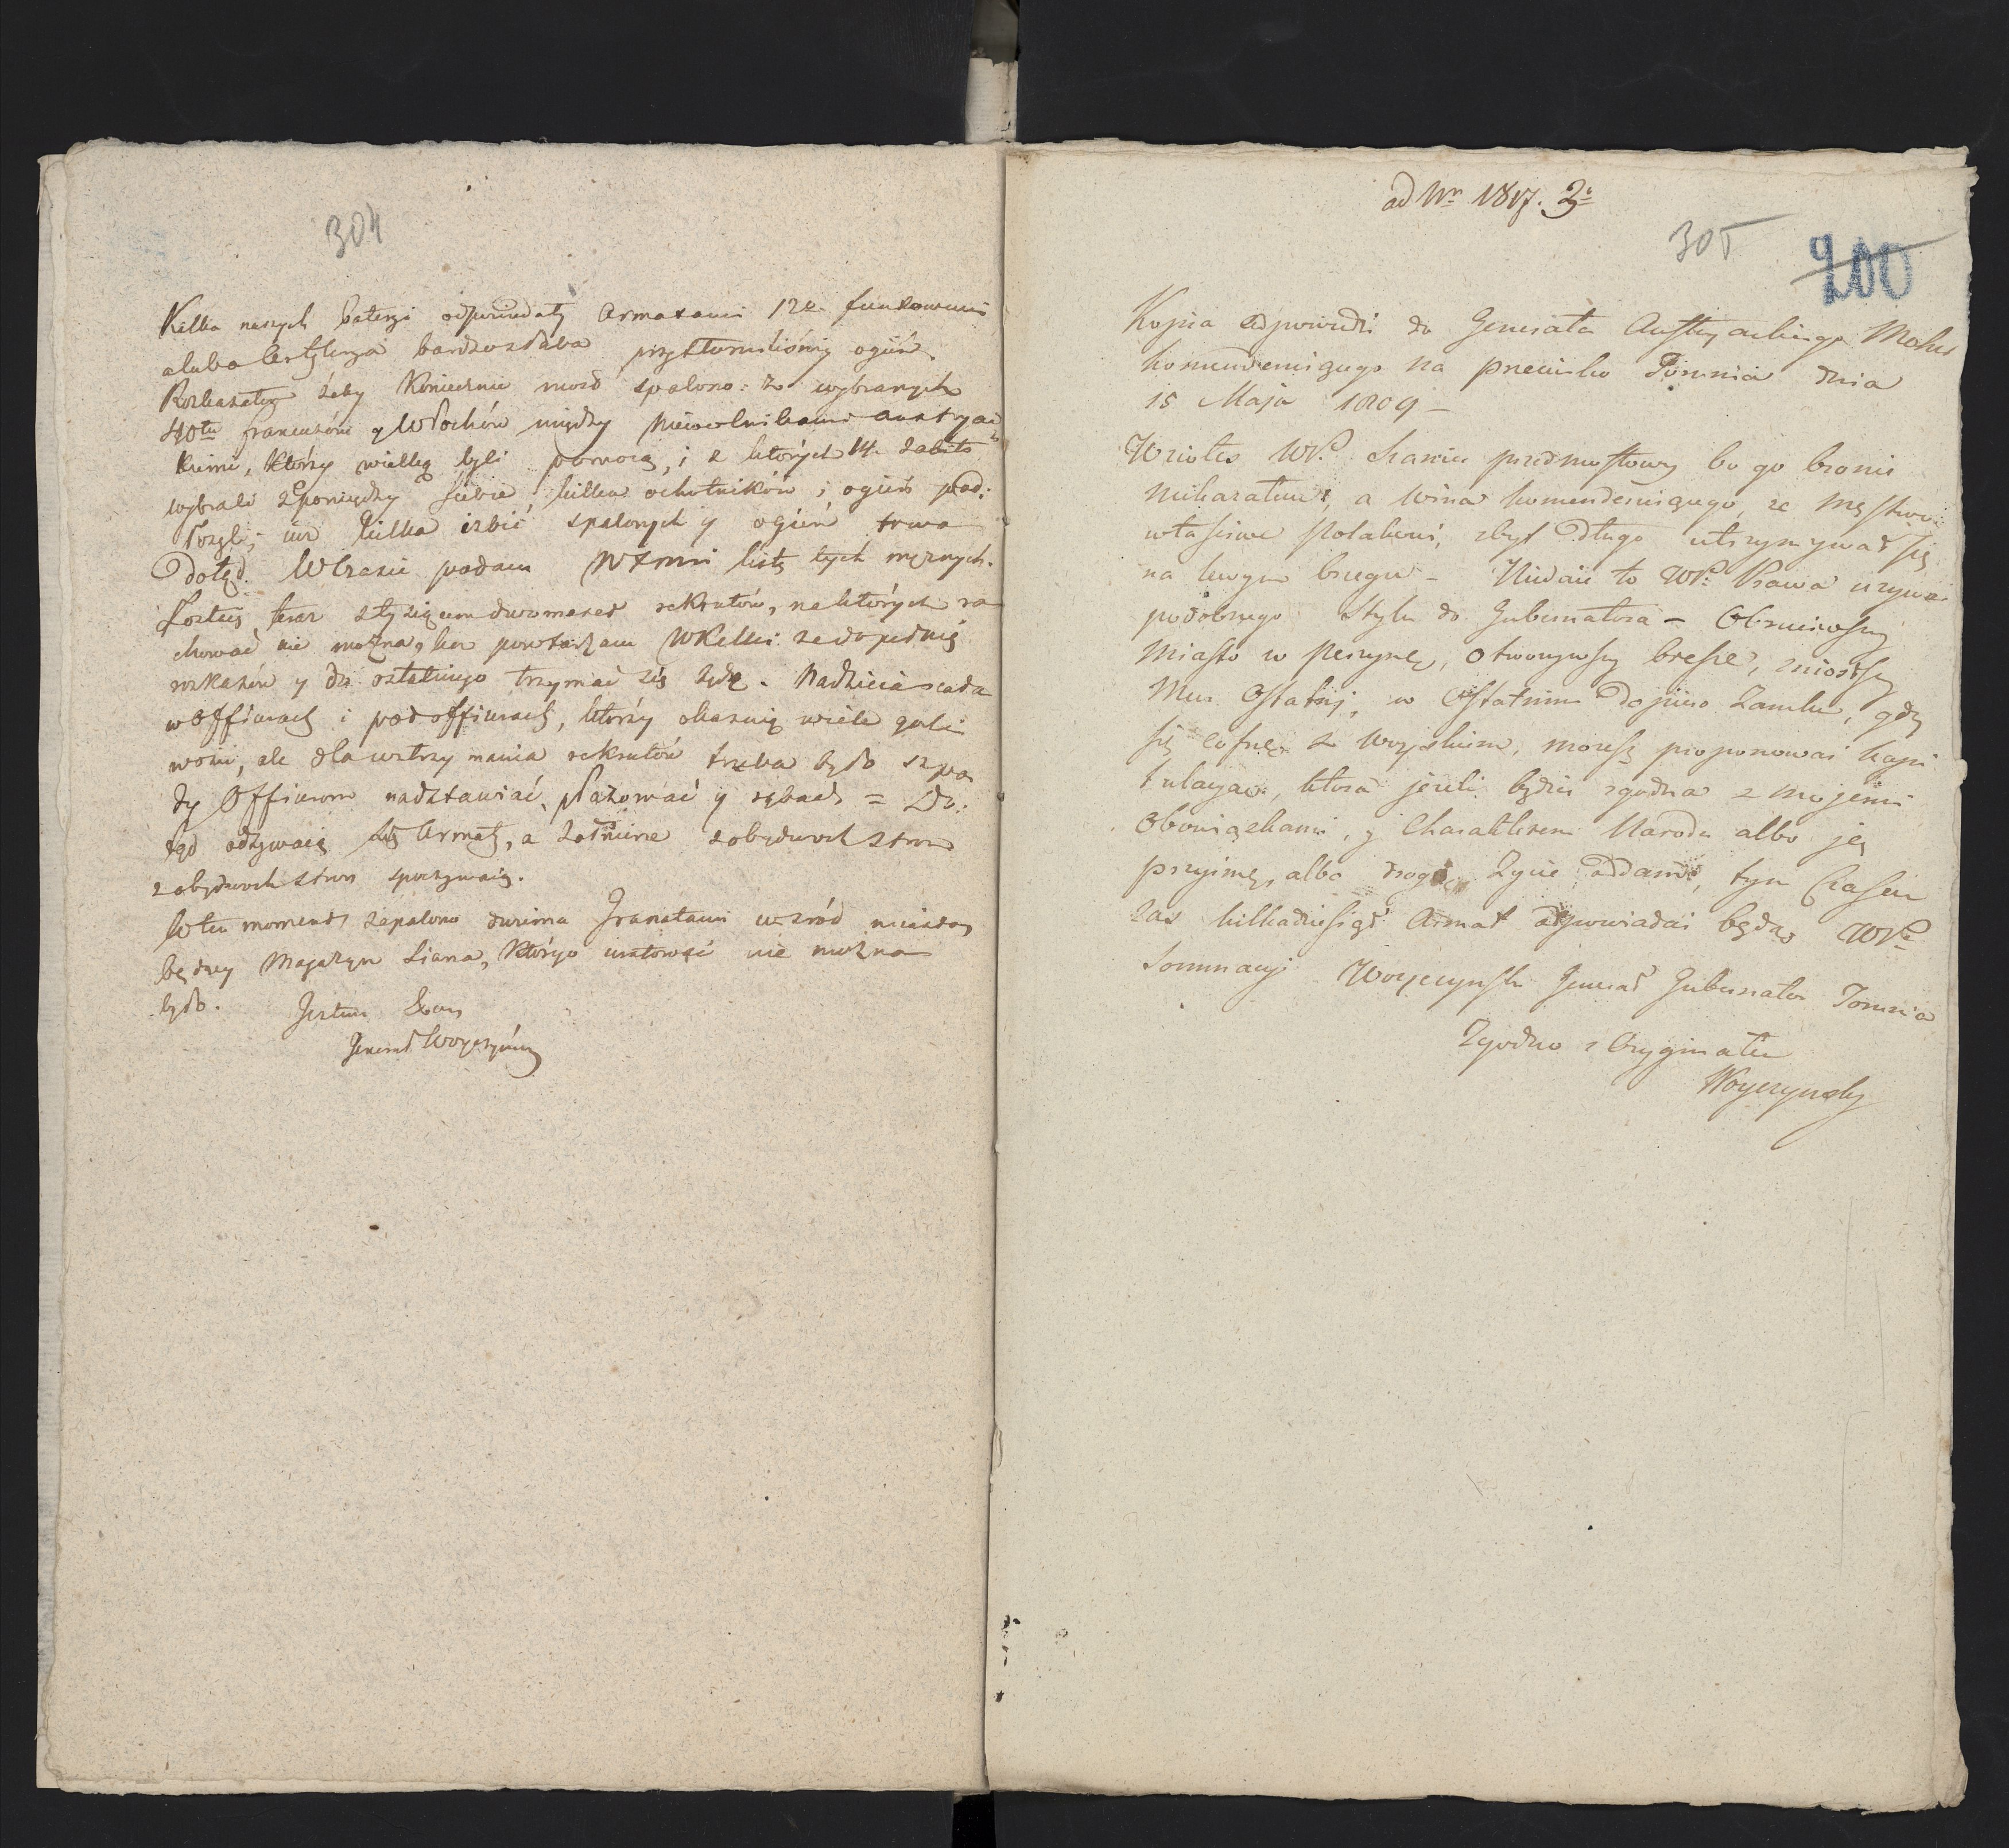 304
Kilka naszych baterzi odpowiedały Armatami 12o funtowemi
aluba Artyleria bardzo słaba przytłumiliśmy ogień.
Rozkazałem żeby koniecznie most spalono: to wybranych
40tu francuzów y Włochów między niewolnikami austryac
kiemi, którzy wielką byli pomocą, i z których 14. zabito
wybrało zpomiędzy siebie kilku ochotników i ogień pod:
łożyli; już kilka izbic spalonych y ogień trwa
Dotąd. W Czasie podam listę tych mężnych.
Jestem teraz z tysiącem dwomaset rekrutów, na których ra
chować nie można, powtarzam W zedopełnię
rozkazów y do ostatniego trzymać się będę. Nadzieia cała
w Officerach i podofficerach, którzy okazuią wiele gorli
wości, ale dla wstrzymania rekrutów trzeba było szpa
dy Officerom nadstawiać, płazować y rąbać = Do:
tąd odzywaią się Armaty, a żołnierze z obydwoch stron
z obydwoch stron spoczywaią.
W ten moment zapalono dwiema Granatami wśród miasta
będący Magazyn Siana, którego uratować nie można
było. Jestem
Generał Woyczyński
ad Nrm 1817. 3o
305
200
Kopia odpowiedzi do Generała Austryackiego Mohr
komenderuiącego na przeciwko Torunia dnia
15 Maja 1809 -
Wziołeś WP. Szaniec przedmostowy bo go bronić
niekazałem, a wina komenderuiącego, że męstwo
właściwe Polakowi, zbyt długo utrzymywał się
na lewym brzegu - Niedaie to WP. Prawa używać
podobnego Stylu do Gubernatora - Obruciwszy
Miasto w perzynę, otworzywszy breszę, zniosłszy
Mur Ostatni, w Ostatnim dopiero Zamku, gdy
się cofnę z woyskiem, możesz proponować kapi
tulacyą, która jeżeli będzie zgodna z mojemi
Obowiązkami, y Charakterem Narodu albo ją
przyimę, albo drogo Życie oddam, tym Czasem
zaś kilkadziesiąt Armat odpowiadać będą WPa
Sommacyi Woyczyński Generał Gubernator Torunia
Zgodno z Oryginałem
Woyczynsky